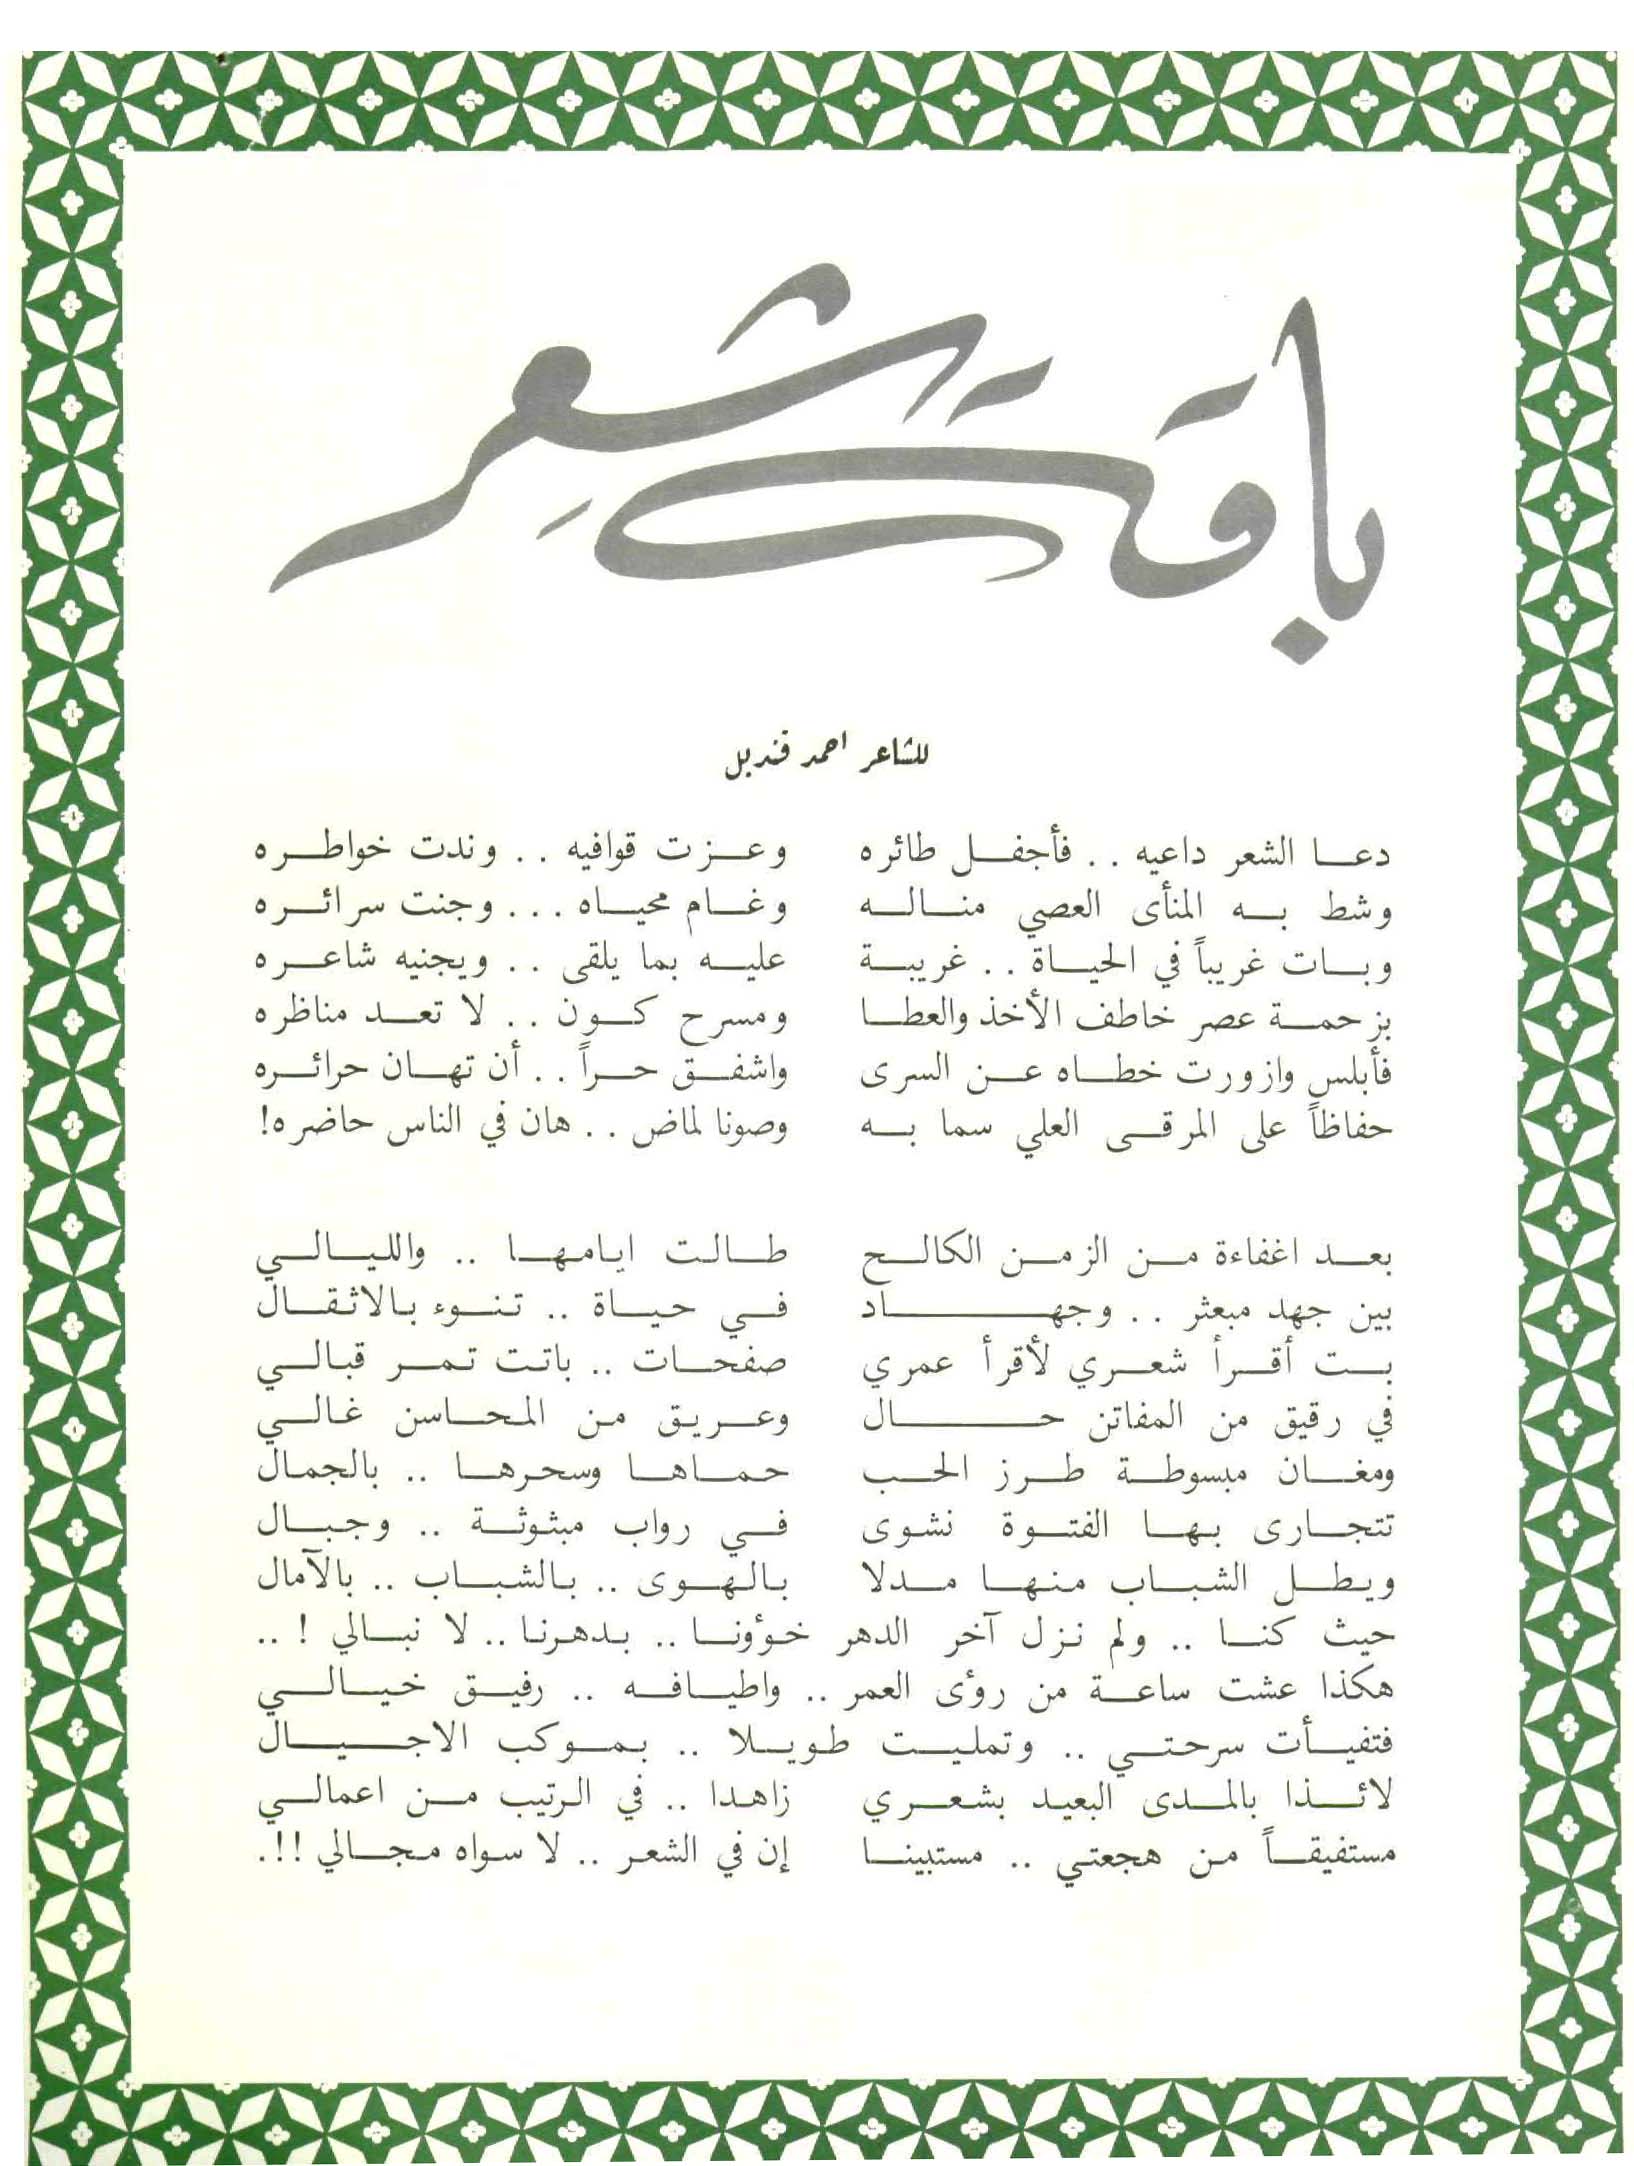 باقة شعر
للشاعر احمد قنديل
دعا الشعر داعيه . . فأجفل طائره وعزت قوافيه . . وندت خواطره
وشط به المنأى العصي مناله وغام محياه . . . وجنت سرائره
وبات غريباً في الحياة . . غريبة عليه بما يلقى . . ويجنيه شاعره
بزحمة عصر خاطف الأخذ والعطا ومسرح كون . . لا تعد مناظره
فأبلس وازورت خطاه عن السرى واشفق حراً . . أن تهان حرائره
حفاظاً على المرقى العلي سما به وصونا لماض . . هان في الناس حاضره!
بعد اغفاءة من الزمن الكالح طالت ايامها .. والليالي
بين جهد مبعثر . . وجهاد في حياة .. تنوء بالاثقال
بت أقرأ شعري لأقرأ عمري صفحات .. باتت تمر قبالي
في رقيق من المفاتن حال وعريق من المحاسن غالي
ومغان مبسوطة طرز الحب حماها وسحرها .. بالجمال
تتجارى بها الفتوة نشوى في رواب مبثوثة .. وجبال
ويطل الشباب منها مدلا بالهوى .. بالشباب .. بالآمال
حيث كنا .. ولم نزل آخر الدهر خؤونا .. بدهرنا .. لا نبالي ! ..
هكذا عشت ساعة من رؤى العمر .. واطيافه .. رفيق خيالي
فتفيأت سرحتي .. وتمليت طويلا .. بموكب الاجيال
لائذا بالمدى البعيد بشعري زاهدا .. في الرتيب من اعمالي
مستفيقاً من هجعتي .. مستبينا إن في الشعر .. لا سواه مجالي !!.